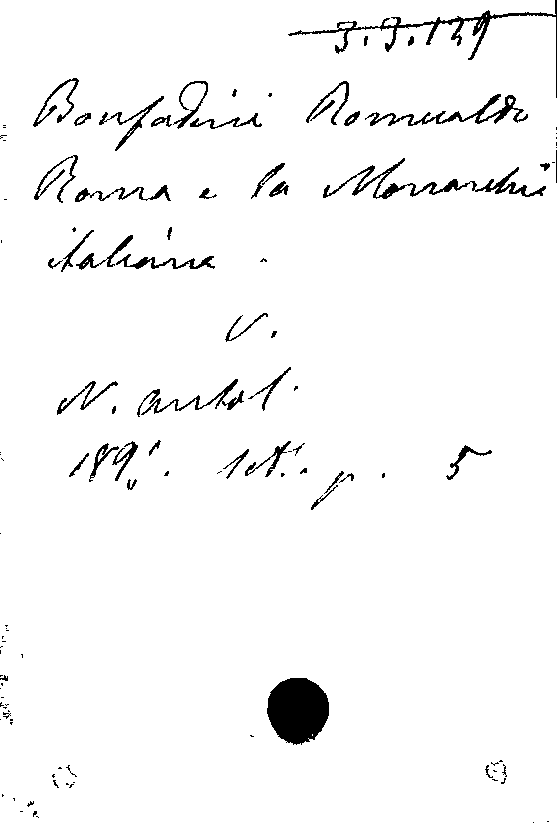 3.3.129
Bonfadini Romualdo
Roma e la Monarchia
italiana.
V.
N. antol.
sett. p. 5